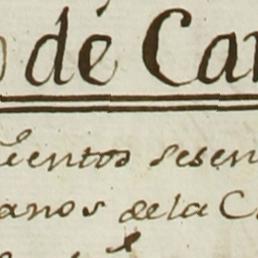 de Car
uentos sesen
anos de la C